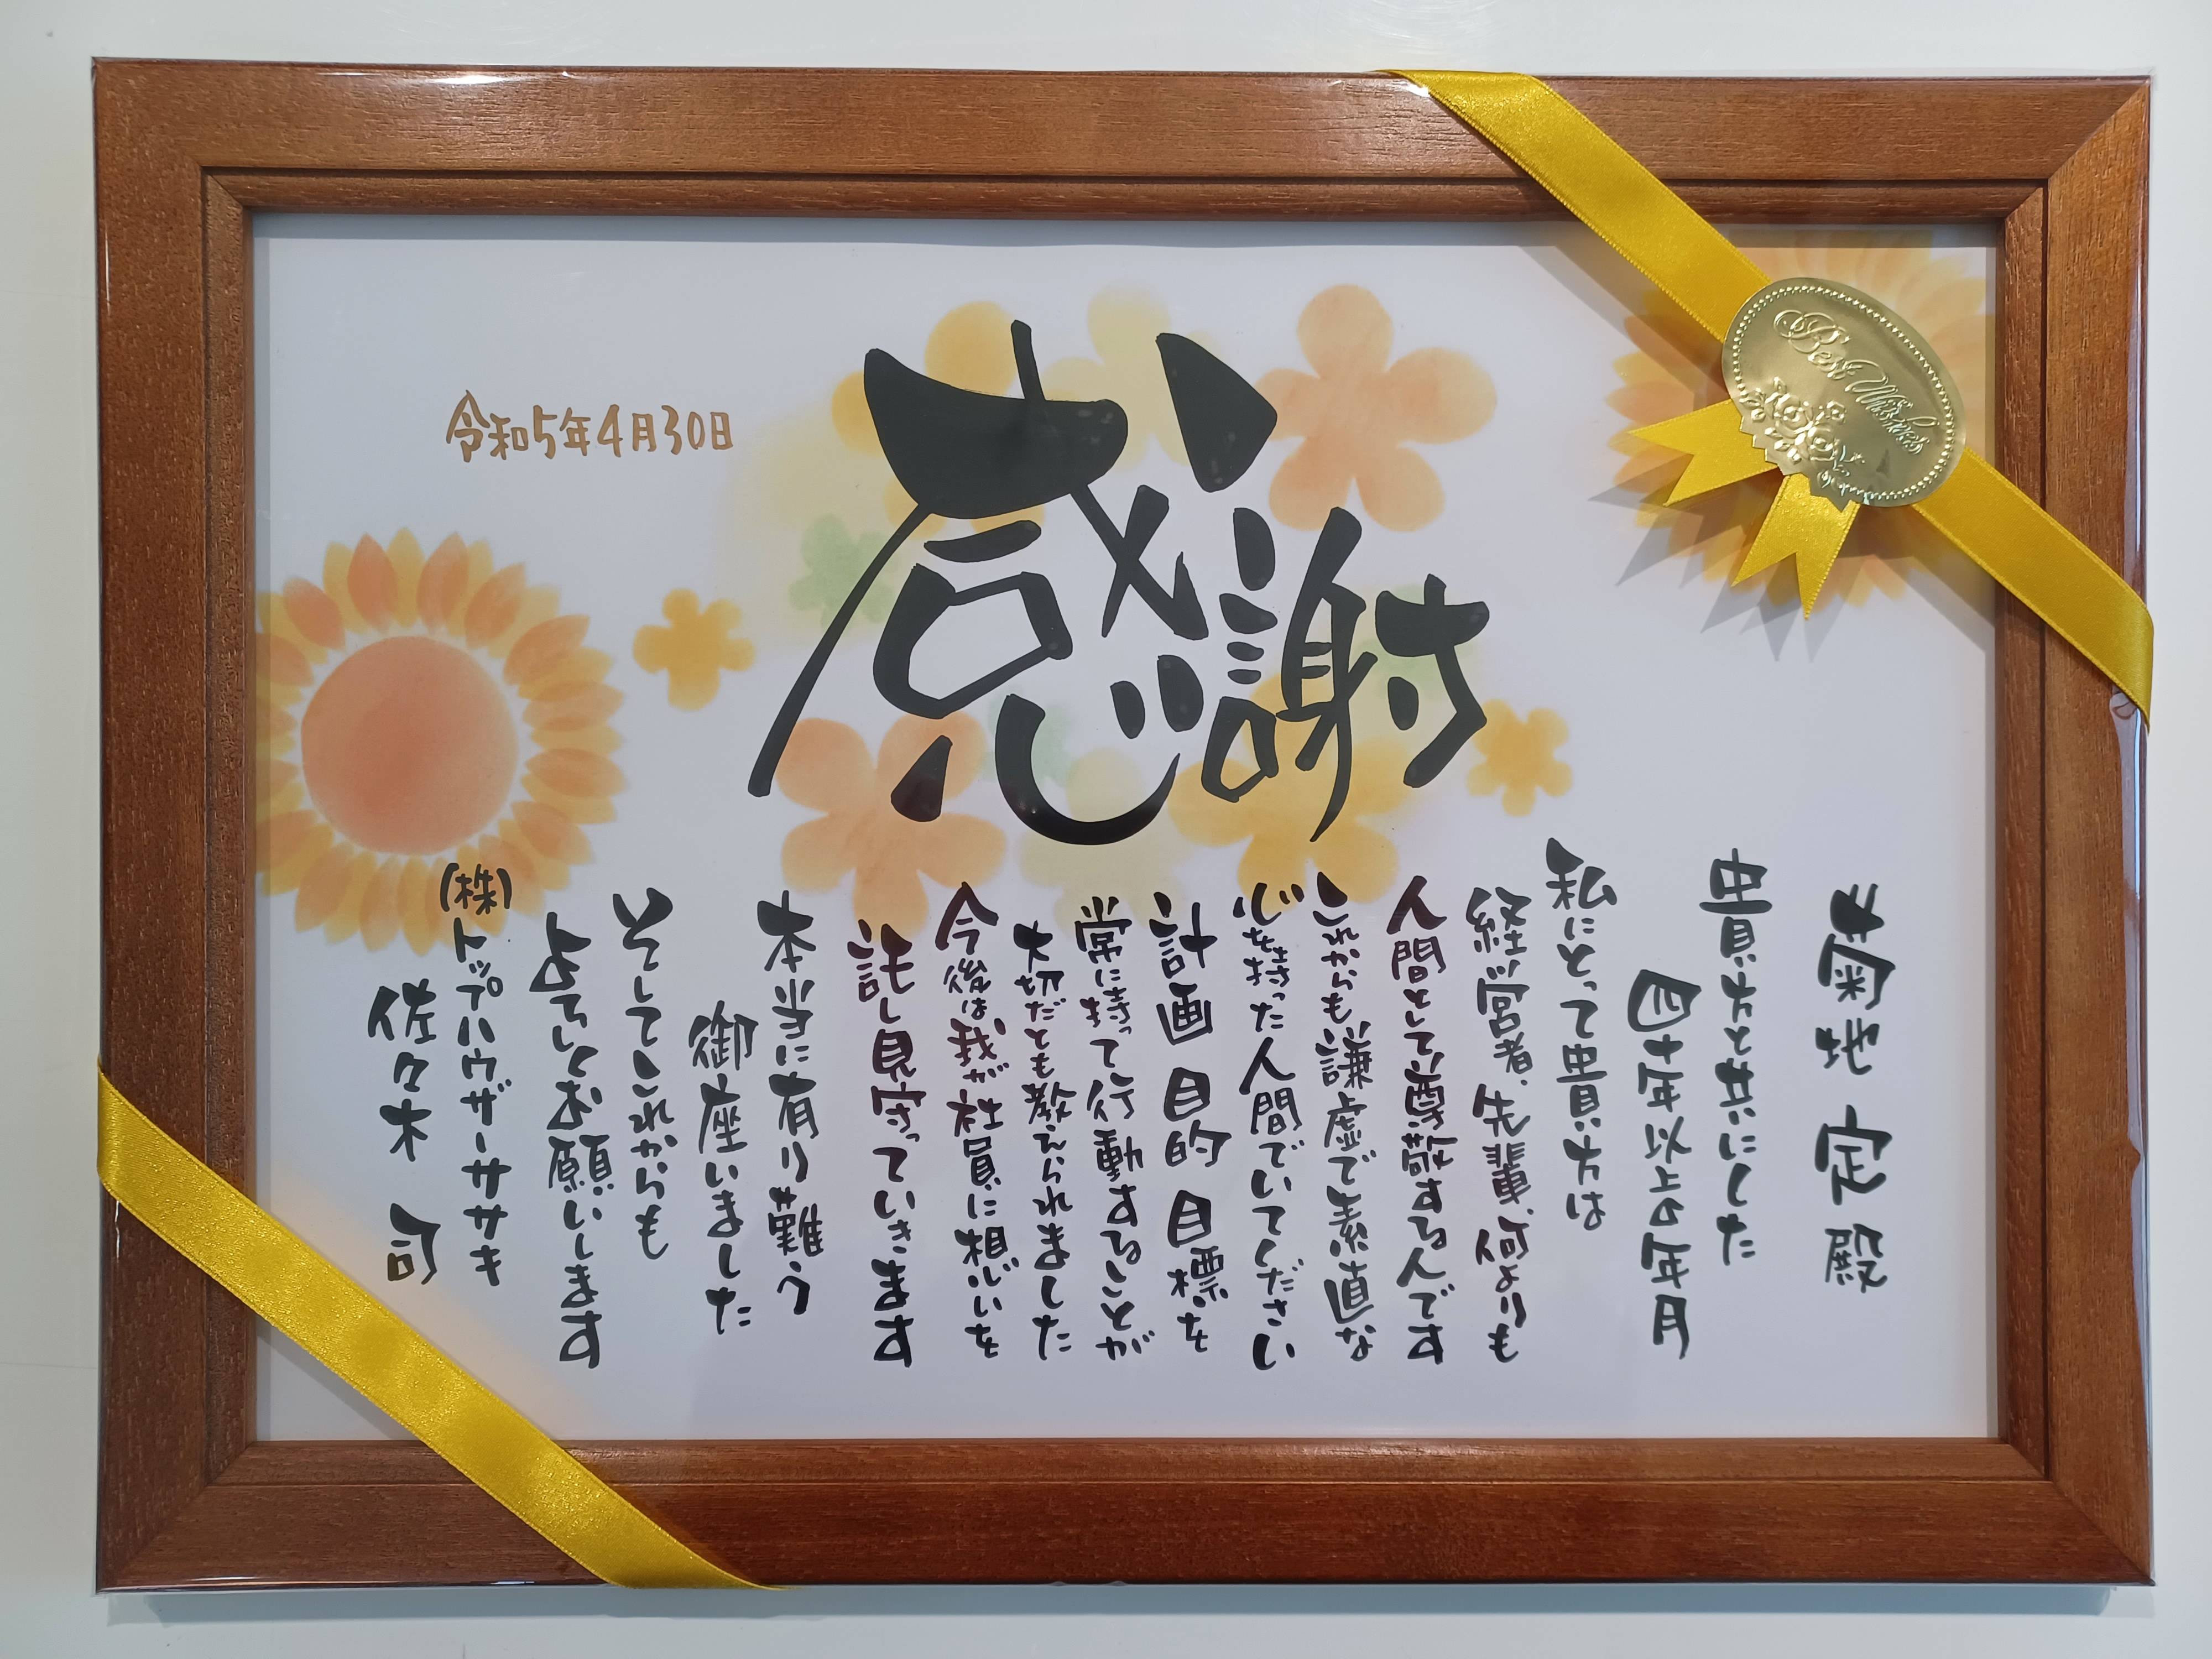 感謝
令和5年4月30日
Best Wishes
菊地 定 殿
貴方と共にした
四十年以上の年月
私にとって貴方は
経営者、先輩、何よりも
人間として尊敬する人です
これからも謙虚で素直な
心を持った人間でいてください
計画 目的 目標を
常に持って行動することが
大切だとも教えられました
今後は我が社員に想いを
託し見守っていきます
本当に有り難う
御座いました
そしてこれからも
よろしくお願いします
(株)トップハウザーササキ
佐々木 司